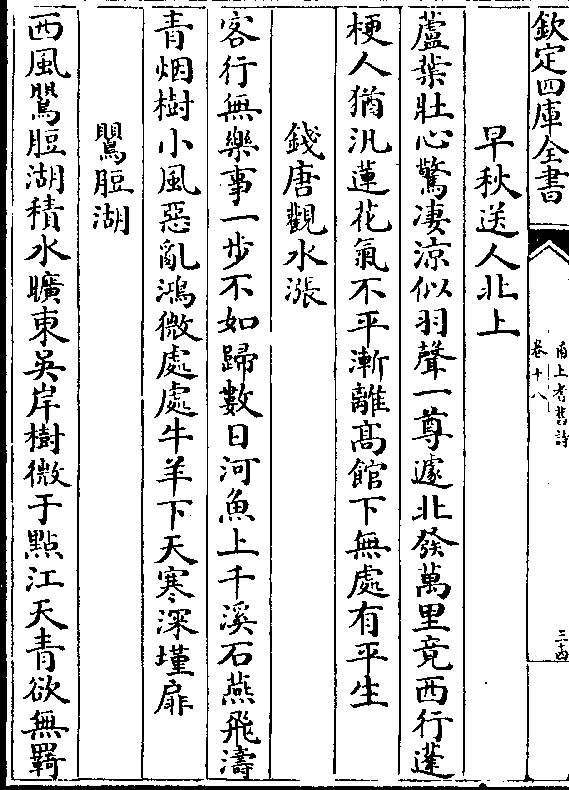 欽定四庫全書
甬上耆舊詩
卷十八
三十四
早秋送人北上
蘆葉壯心驚凄涼似羽聲一尊遽北發萬里竟西行蓬
梗人猶汎蓮花氣不平漸離髙館下無處有平生
錢唐觀水漲
客行無樂事一步不如歸數日河魚上千溪石燕飛濤
青烟樹小風惡亂鴻微處處牛羊下天寒深墐扉
鸎脰湖
西風鸎脰湖積水曠東吳岸樹微于點江天青欲無羇